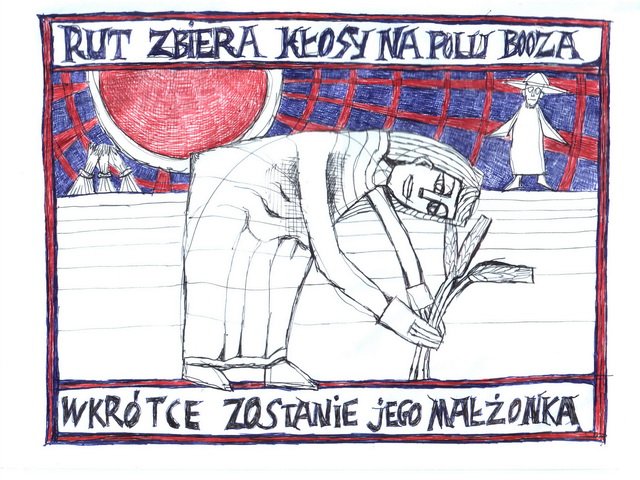 RUT ZBIERA KŁOSY NA POLU BOOZA
WKRÓTCE ZOSTANIE JEGO MAŁŻONKĄ